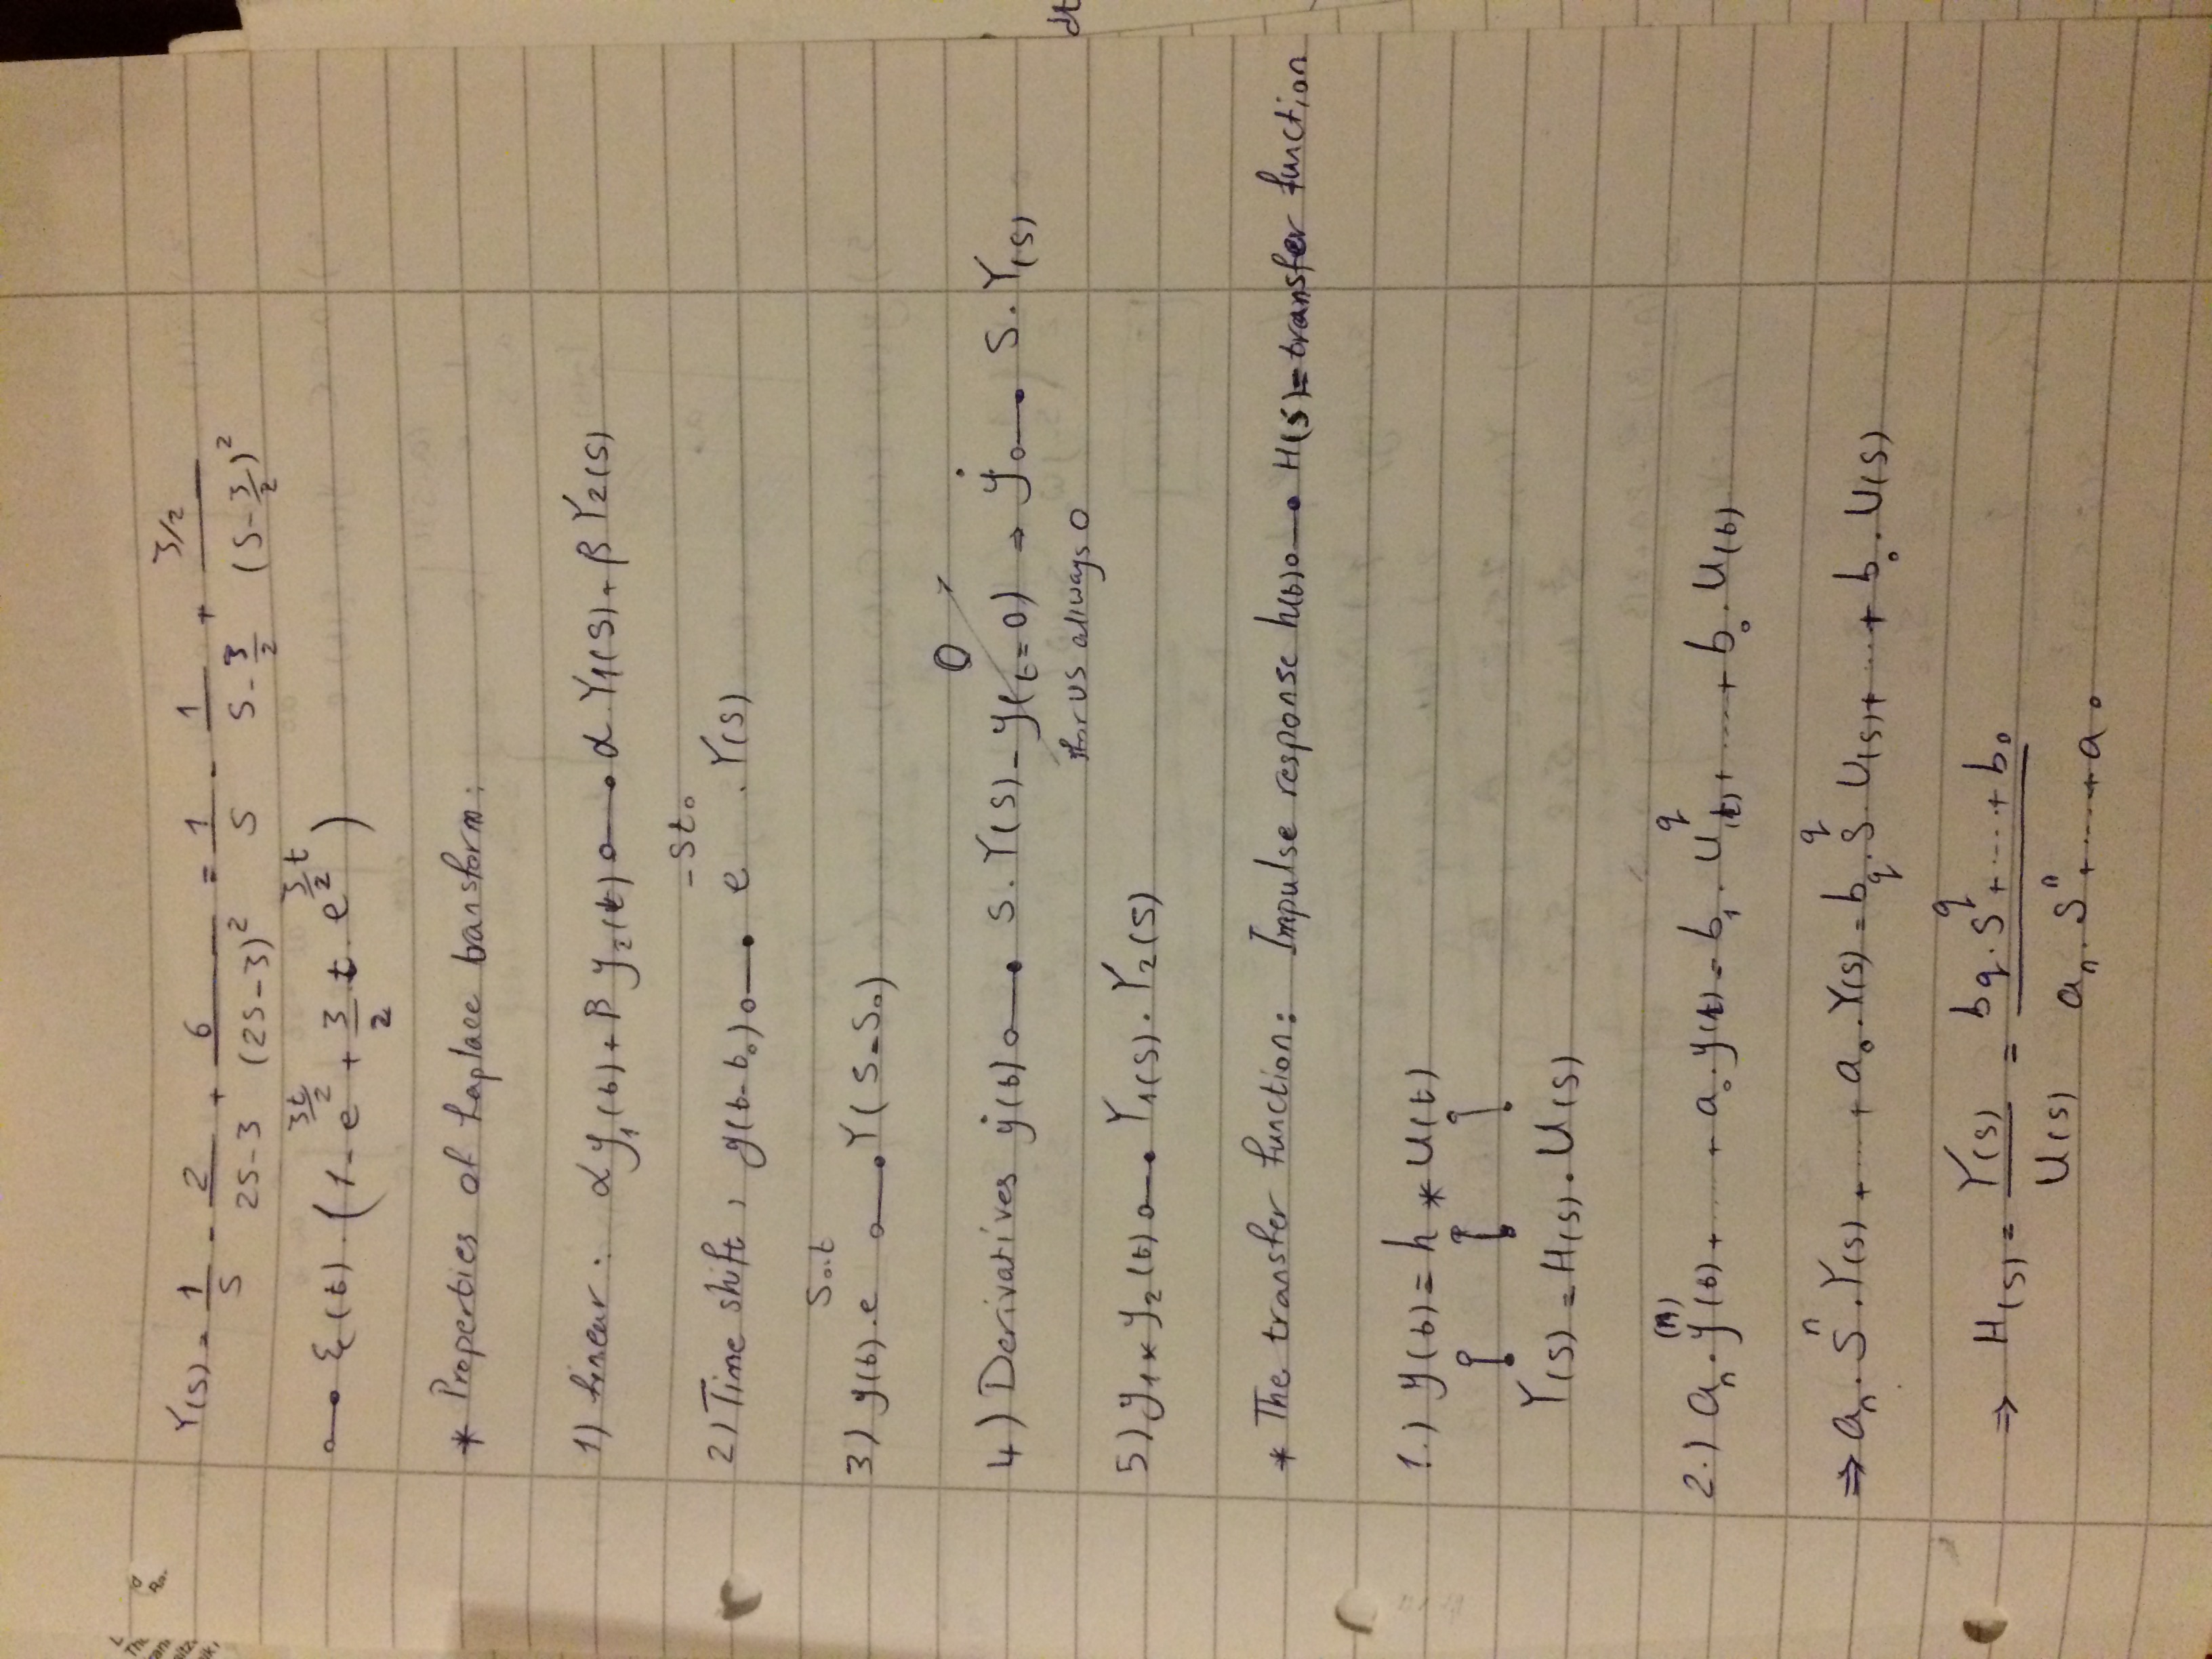 Y(s) = 1/s - 2/(2s-3) + 6/(2s-3)² = 1/s - 1/(s-3/2) + (3/2)/(s-3/2)²
o—• ξ(t) · (1 - e^(3t/2) + 3/2 t · e^(3/2 t))
* Properties of Laplace transform:
1) linear: α y₁(t) + β y₂(t) o—• α Y₁(s) + β Y₂(s)
2) Time shift, y(t-t₀) o—• e^(-st₀) · Y(s)
3) y(t) · e^(s₀·t) o—• Y(s-s₀)
4) Derivatives ẏ(t) o—• s · Y(s) - y(t=0) ⇒ ẏ o—• s · Y(s)
0
for us allways 0
dt
5) y₁ * y₂(t) o—• Y₁(s) · Y₂(s)
* The transfer function: Impulse response h(t) o—• H(s) = transfer function
1.) y(t) = h * u(t)
Y(s) = H(s) · U(s)
2.) aₙ · y⁽ⁿ⁾(t) + ..... + a₀ · y(t) = b₁ · u^q(t) + ..... + b₀ · u(t)
⇒ aₙ · sⁿ · Y(s) + .... + a₀ · Y(s) = b_q · s^q · U(s) + .... + b₀ · U(s)
⇒ H(s) = Y(s)/U(s) = (b_q · s^q + ..... + b₀)/(aₙ · sⁿ + ..... + a₀)